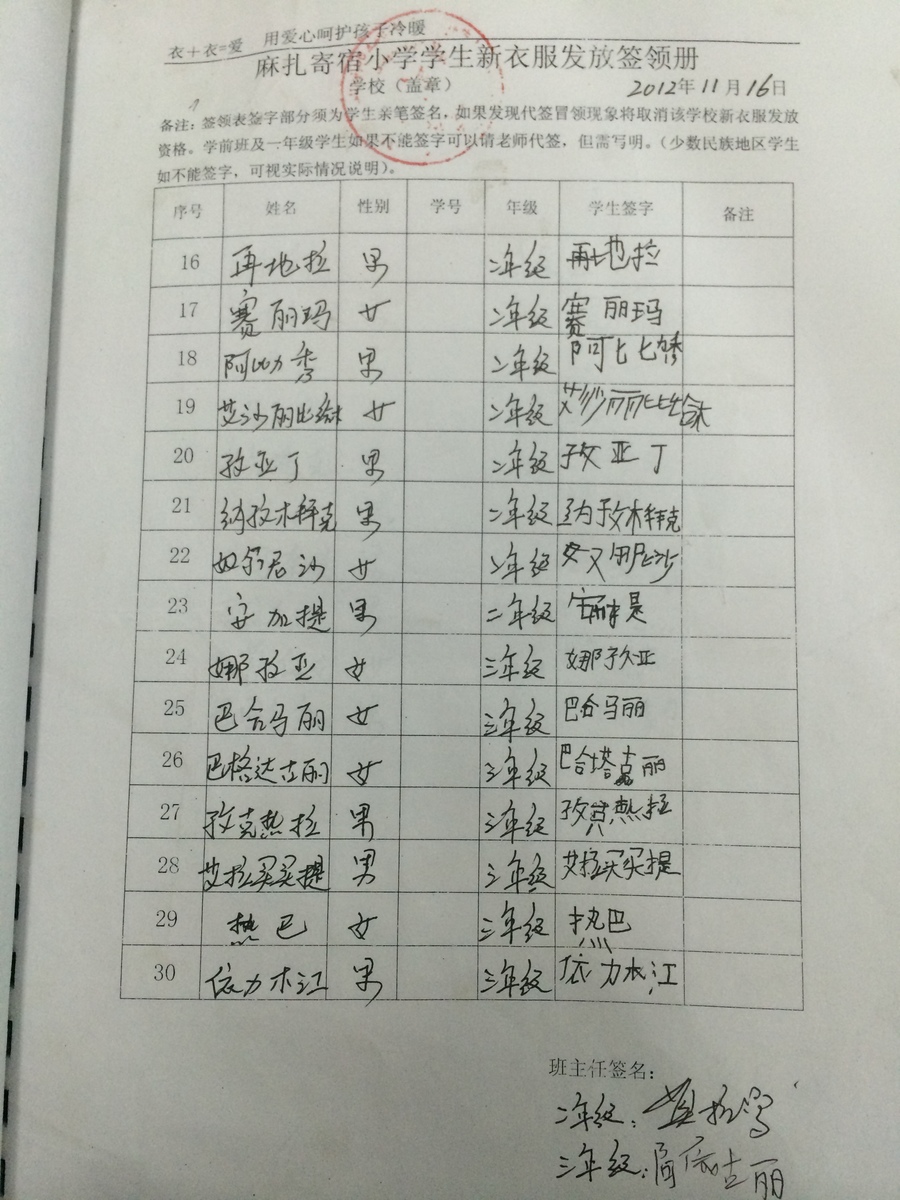 衣+衣=爱 用爱心呵护孩子冷暖
麻扎寄宿小学学生新衣服发放签领册
学校（盖章） 2012年11月16日
备注：签领表签字部分须为学生亲笔签名，如果发现代签冒领现象将取消该学校新衣服发放
资格。学前班及一年级学生如果不能签字可以请老师代签，但需写明。（少数民族地区学生
如不能签字，可视实际情况说明）。
序号 姓名 性别 学号 年级 学生签字 备注
16 再地拉 男 二年级 再地拉
17 赛丽玛 女 二年级 赛丽玛
18 阿比力 男 二年级 阿比
19 艾沙丽比 女 二年级
20 孜亚丁 男 二年级 孜亚丁
21 纳孜木拜克 男 二年级 纳孜木拜克
22 奴尔君沙 女 二年级
23 安加提 男 二年级
24 娜孜亚 女 三年级 娜孜亚
25 巴合马丽 女 三年级 巴合马丽
26 巴格达古丽 女 三年级 巴合塔 丽
27 孜克热拉 男 三年级 孜克热拉
28 艾拉买买提 男 三年级 艾拉买买提
29 热巴 女 三年级 热巴
30 依力木江 男 三年级 依力木江
班主任签名：
二年级：
三年级： 古丽